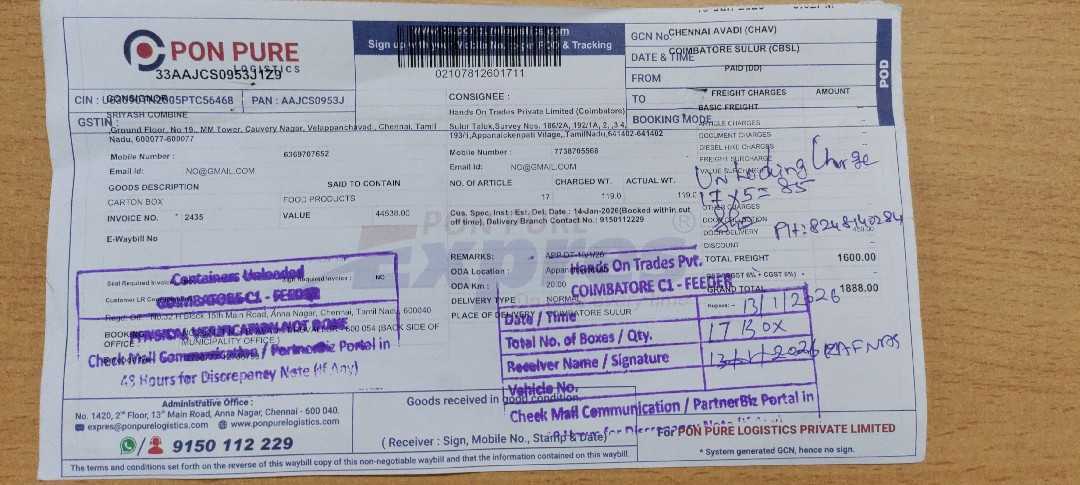 PON PURE
LOGISTICS
33AAJCS0953J1Z9
Sign up with your Mobile No. & Tracking
02107812601711
GCN No
CHENNAI AVADI (CHAV)
DATE & TIME
COIMBATORE SULUR (CBSL)
FROM
PAID (DD)
TO
FREIGHT CHARGES AMOUNT
BOOKING MODE
BASIC FREIGHT
POD
CIN :
PAN : AAJCS0953J
GSTIN :
CONSIGNOR
SRIYASH COMBINE
Ground Floor, No 19., MM Tower, Cauvery Nagar, Velappanchavad, Chennai, Tamil
Nadu, 600077-600077
Mobile Number : 6369707652
Email Id: NO@GMAIL.COM
CONSIGNEE :
Hands On Trades Private Limited (Coimbatore)
Sulur Taluk,Survey Nos. 186/2A, 192/1A, 2, ,3 4,
193/1,Appanaickenpati Vilage,,TamilNadu,641402-641402
Mobile Number : 7738705568
Email Id: NO@GMAIL.COM
GOODS DESCRIPTION SAID TO CONTAIN
CARTON BOX FOOD PRODUCTS
INVOICE NO. : 2435 VALUE 44538.00
E-Waybill No
NO. OF ARTICLE CHARGED WT. ACTUAL WT.
17 119.0 119.0
Cus. Spec. Inst : Est. Del. Date : 14-Jan-2026(Booked within cut
off time), Delivery Branch Contact No.: 9150112229
ARTICLE CHARGES
DOCUMENT CHARGES
DIESEL HIKE CHARGES
FREIGHT SURCHARGE
Unloading Charge
17 X 5 = 85
OTHER CHARGES
DOOR DELIVERY
PH: 8248140284
DISCOUNT
TOTAL FREIGHT 1600.00
GRAND TOTAL 1888.00
PON PURE
Express
REMARKS:
ODA Location :
ODA Km : 20.00
DELIVERY TYPE NORMAL
PLACE OF DELIVERY COIMBATORE SULUR
Containers Unloaded
COIMBATORE C1 - FEEDER
PHYSICAL VERIFICATION NOT DONE
Check Mail Communication / PartnerBiz Portal in
48 Hours for Discrepancy Note (If Any)
NO
Customer LR
15th Main Road, Anna Nagar, Chennai, Tamil Nadu, 600040
BOOKING
OFFICE :
600 054 (BACK SIDE OF
MUNICIPALITY OFFICE)
Hands On Trades Pvt.
COIMBATORE C1 - FEEDER
Date / Time 13/1/2026
Total No. of Boxes / Qty. 17 Box
Receiver Name / Signature
Vehicle No.
Check Mail Communication / PartnerBiz Portal in
Administrative Office :
No. 1420, 2nd Floor, 13th Main Road, Anna Nagar, Chennai - 600 040.
expres@ponpurelogistics.com www.ponpurelogistics.com
9150 112 229
Goods received in good condition.
( Receiver : Sign, Mobile No., Stamp & Date)
For PON PURE LOGISTICS PRIVATE LIMITED
* System generated GCN, hence no sign.
The terms and conditions set forth on the reverse of this waybill copy of this non-negotiable waybill and that the information contained on this waybill